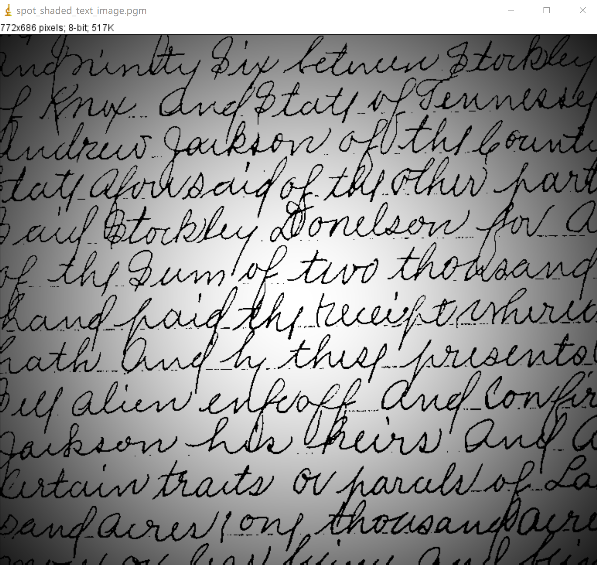 spot shaded text image.pgm
772x686 pixels; 8-bit; 517K
and ninety Six between Stockley
of Knox and State of Tennessee
Andrew Jackson of the Count
tate aforesaid of the other part
Said Stockley Donelson for a
of the Sum of two thousand
hand paid the receipt where
hath and by these presents
Sell alien enfeoff and Confir
Jackson his heirs and a
Certain tracts or parcels of La
sand acres one thousand acre